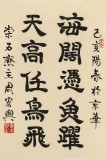 己亥陽春於京華
海闊憑魚躍
天高任鳥飛
崇石齋主周宏興